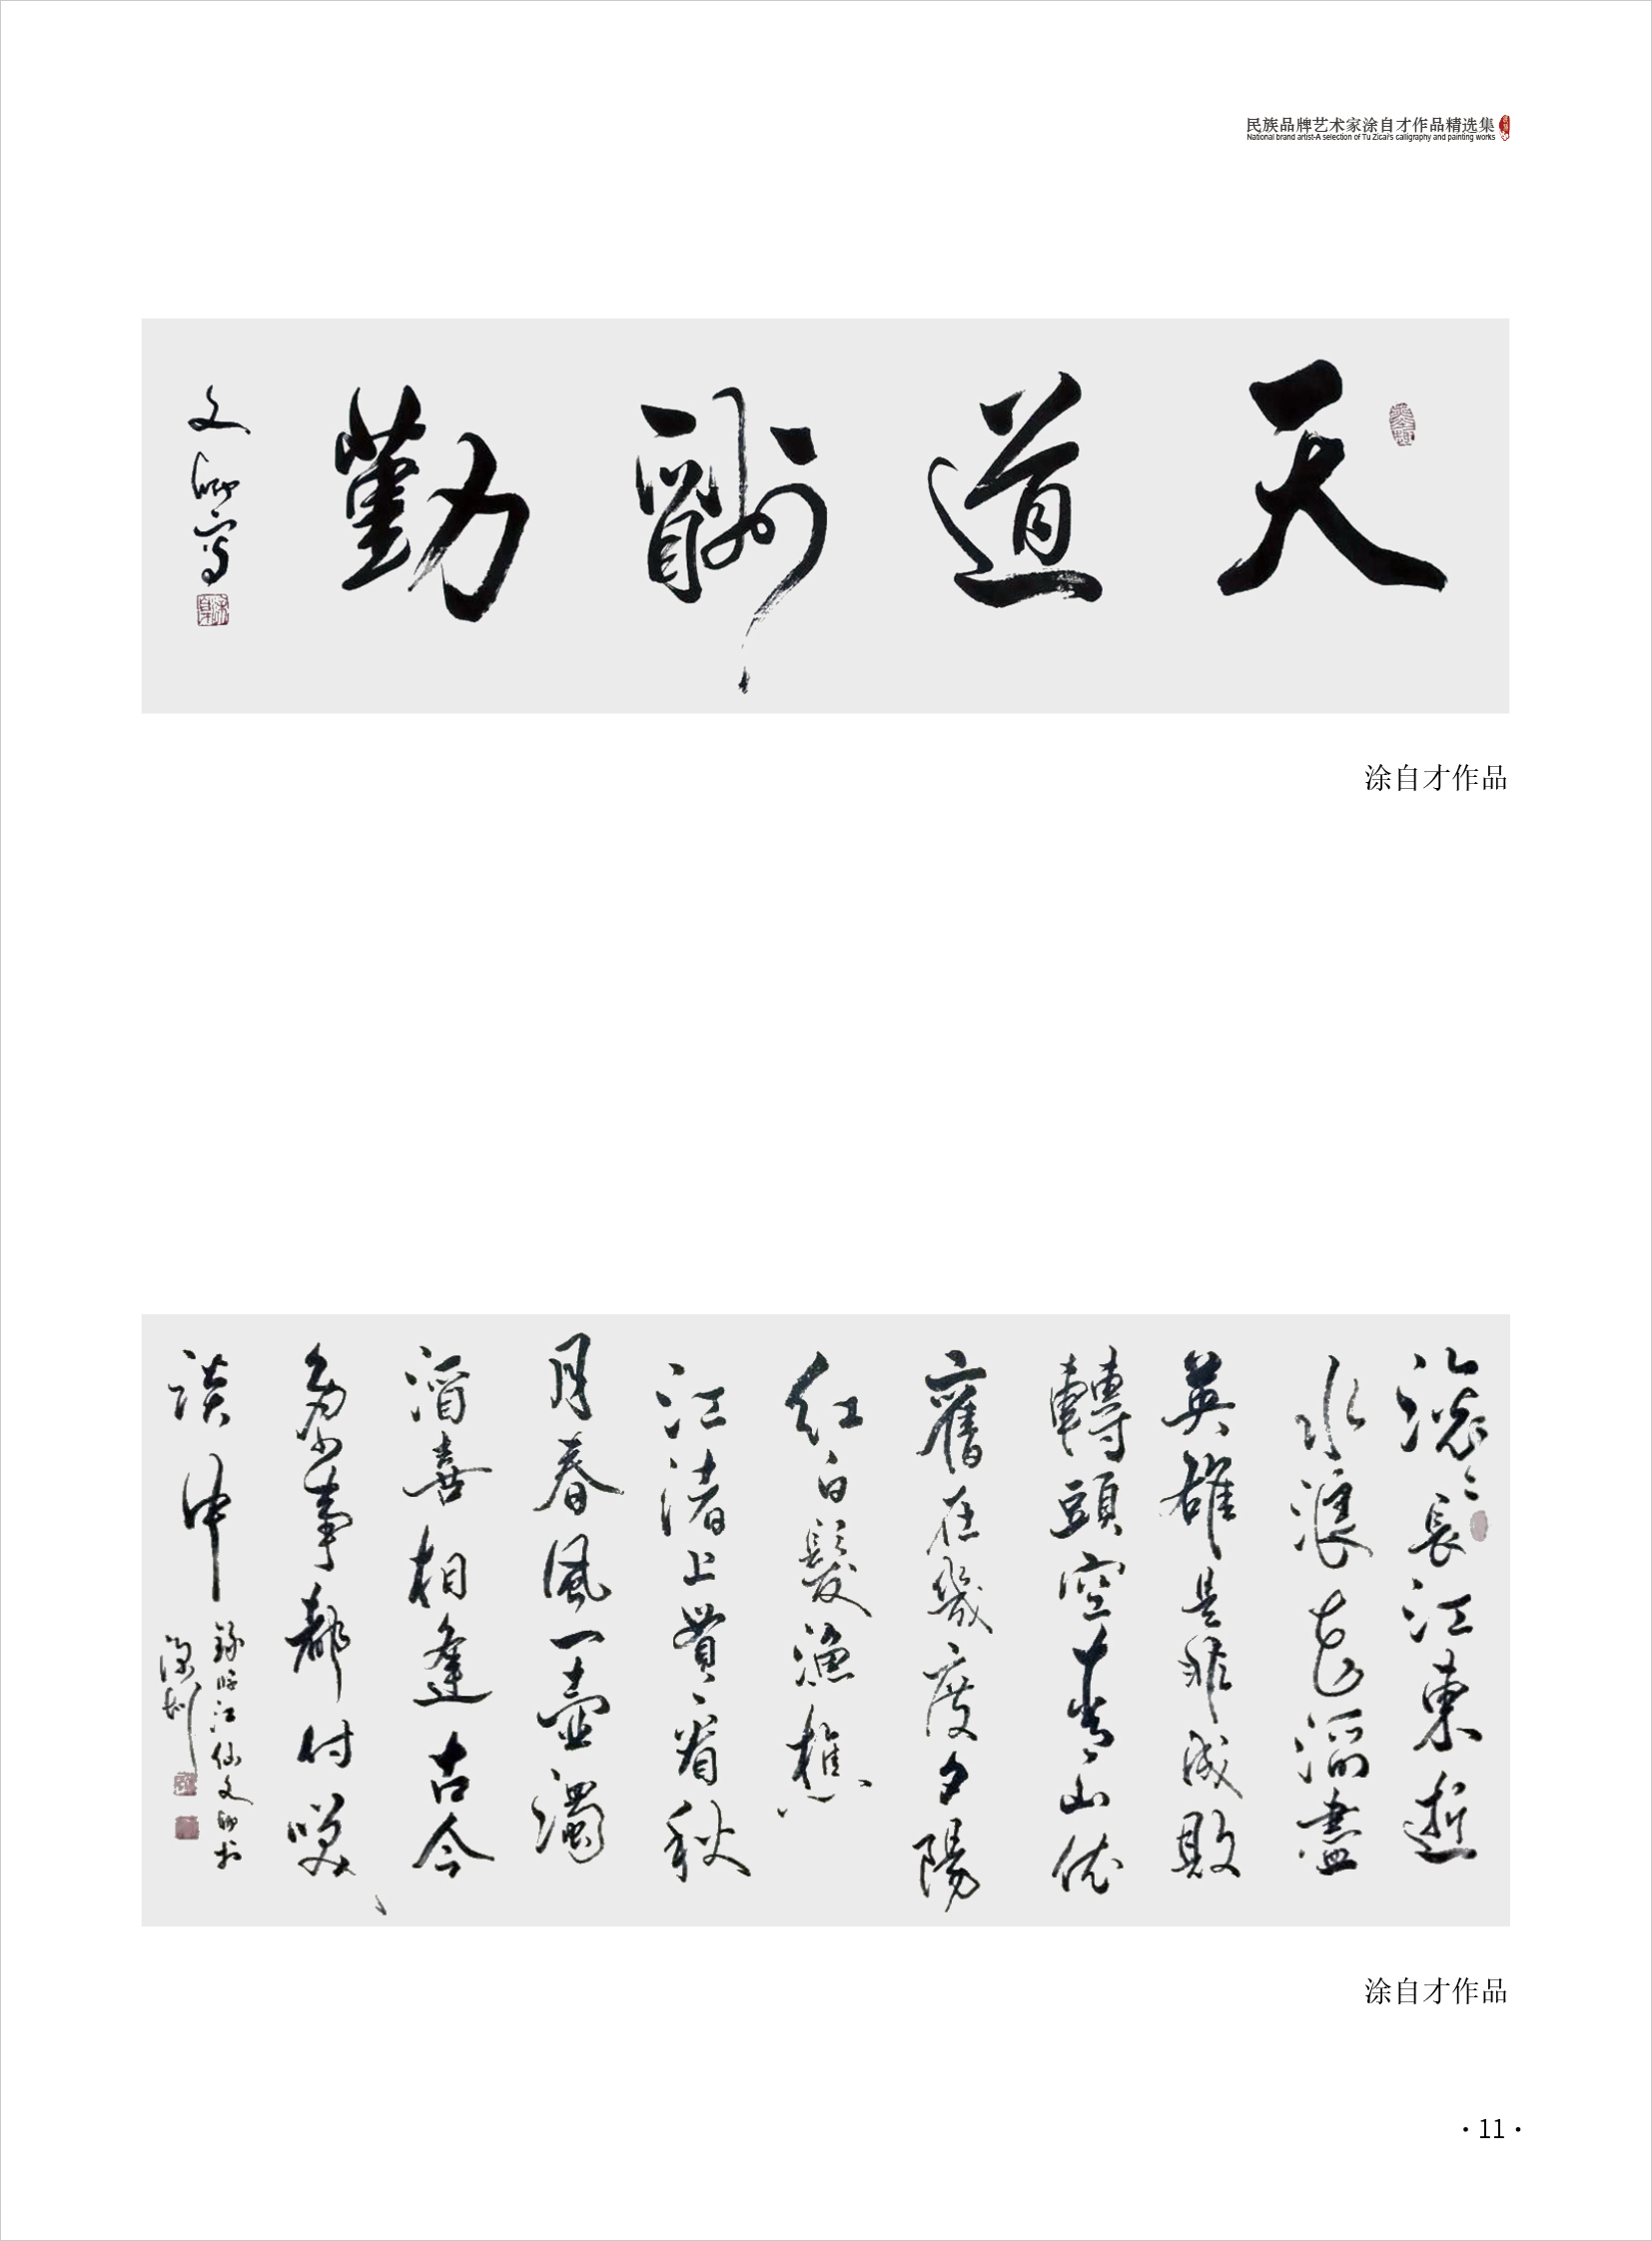 民族品牌艺术家涂自才作品精选集
National brand artist-A selection of Tu Zicai's calligraphy and painting works
天道酬勤
文卿写
涂自才作品
滚〻長江東逝
水浪花滔盡
英雄是非成敗
轉頭空青山依
舊在幾度夕陽
紅白髮漁樵
江渚上貫看秋
月春風一壺濁
酒喜相逢古今
多少事都付咲
談中
錄临江仙文卿书
深圳
涂自才作品
·11·